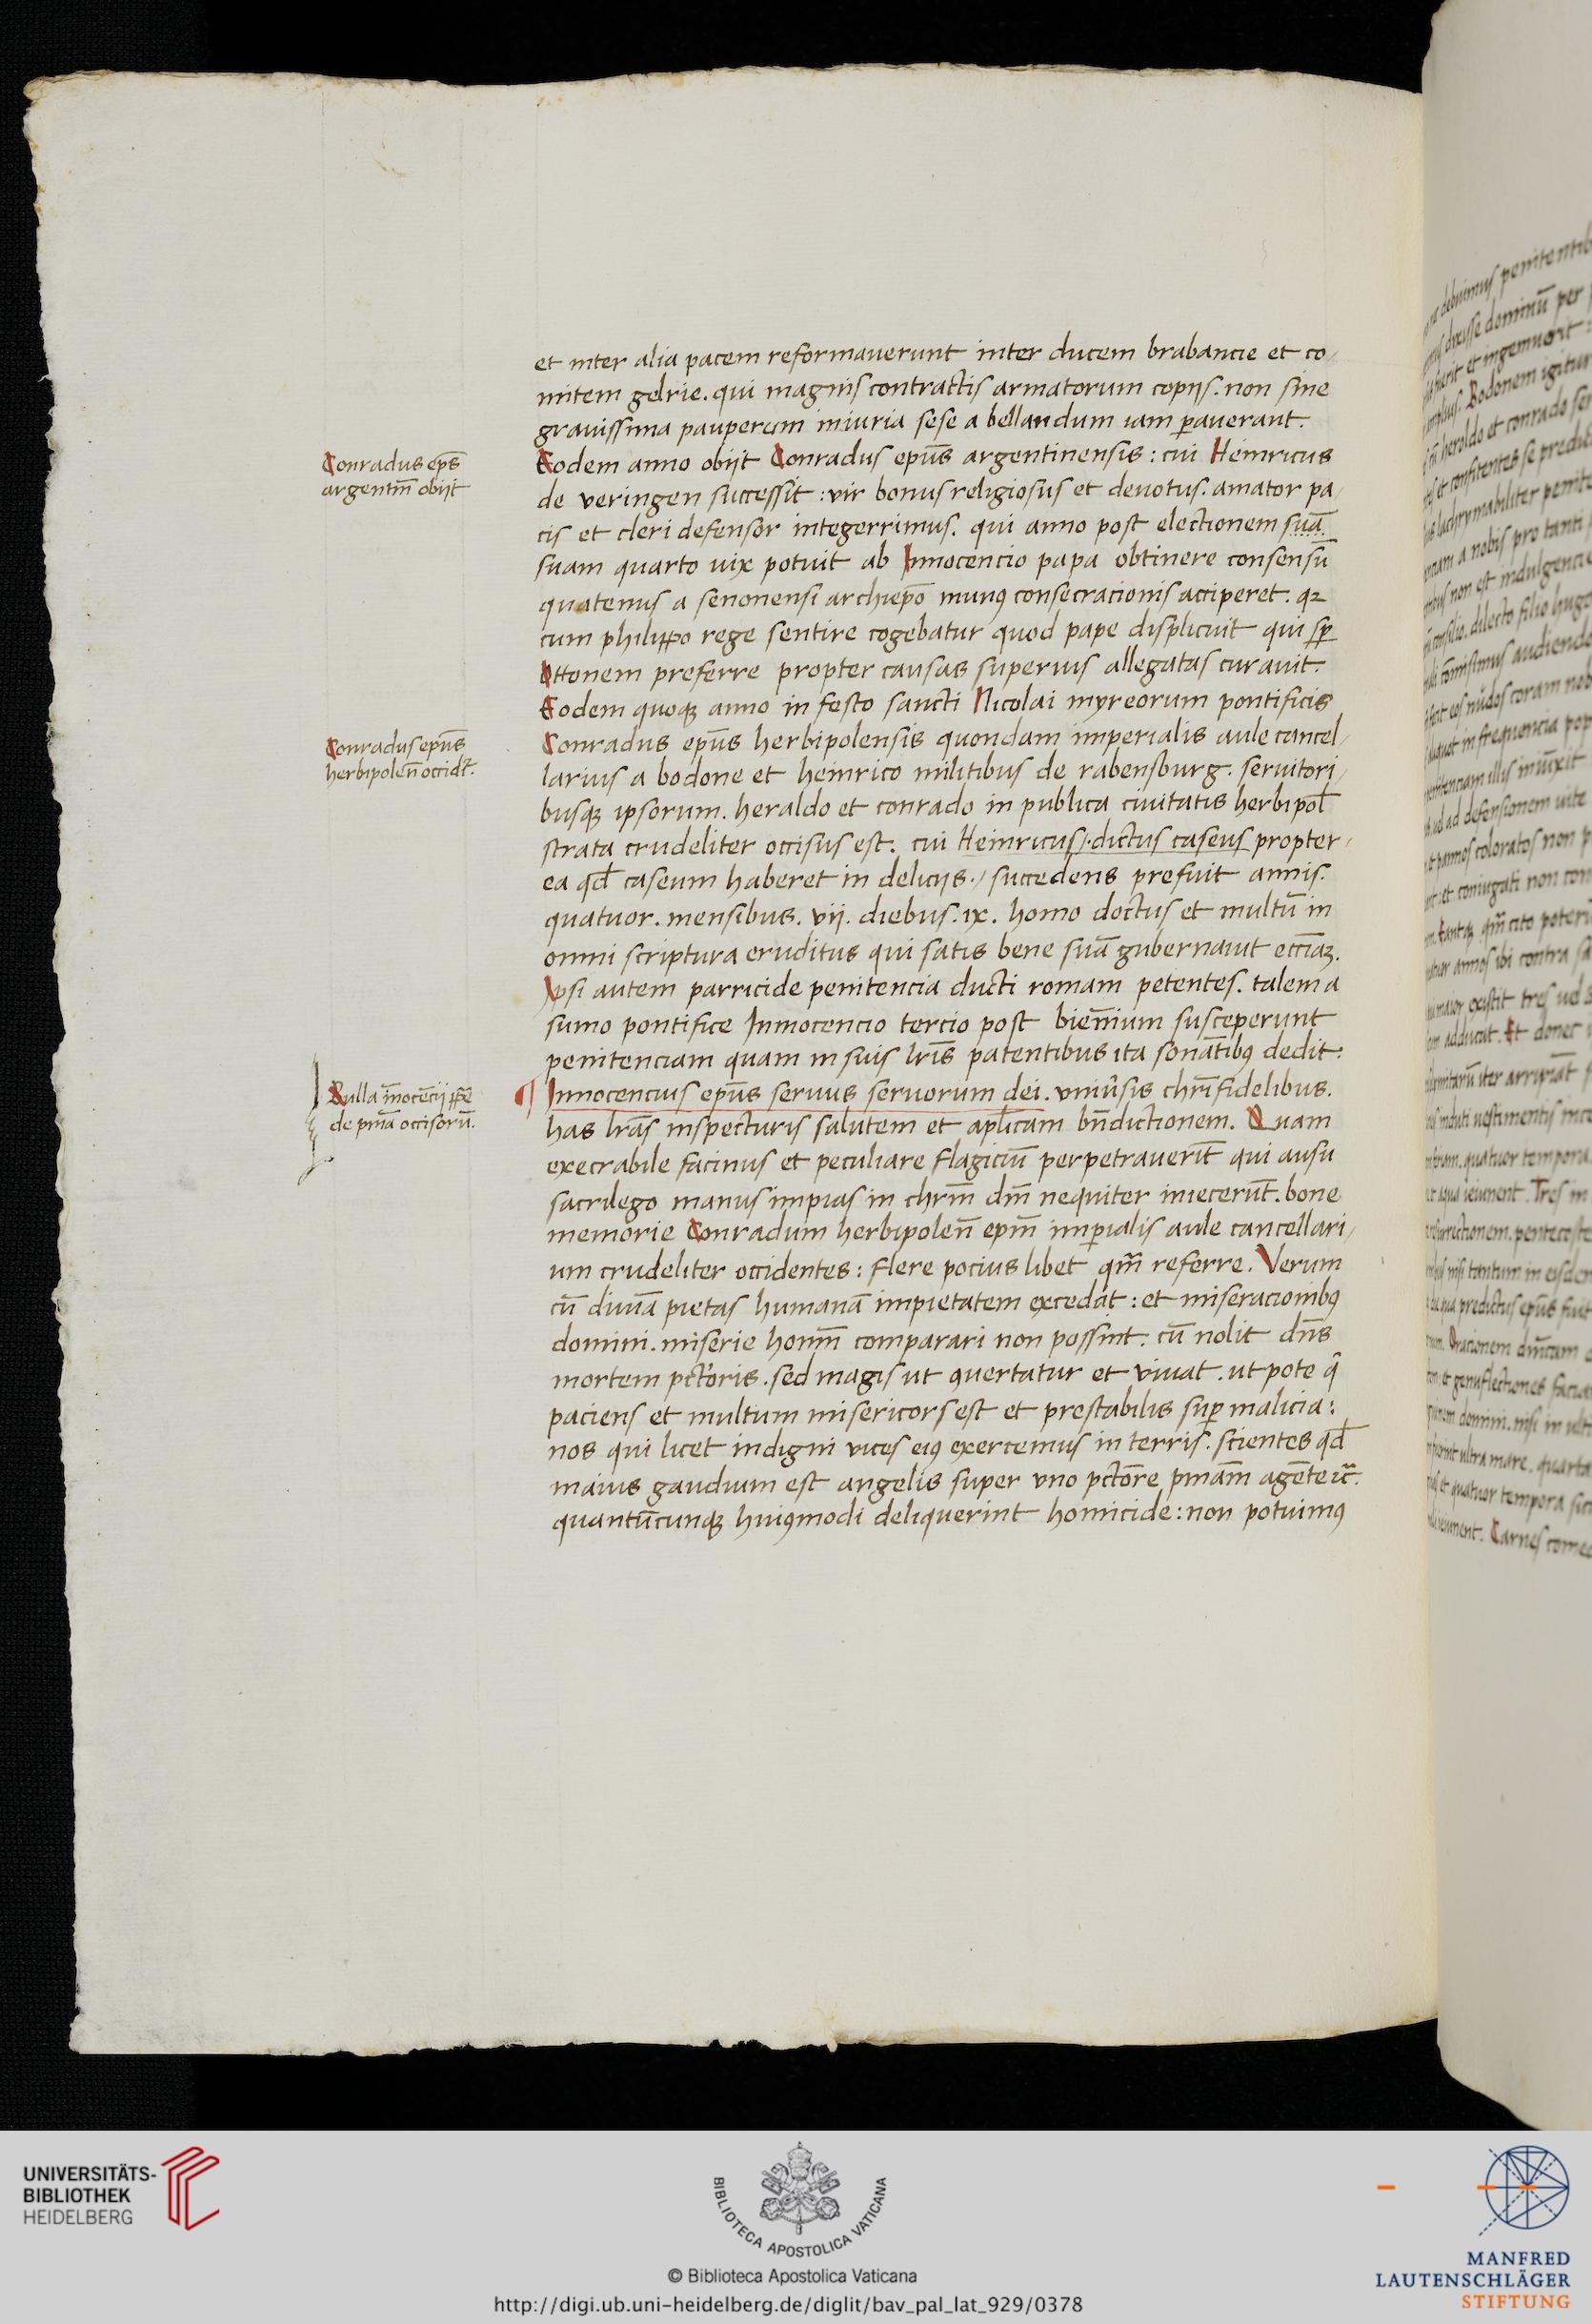 et inter alia pacem reformauerunt inter ducem brabancie et co/
mitem gelrie. qui magnis contractis armatorum copijs. non sine
grauissima pauperum iniuria sese a bellandum iam ꝑauerant.
Conradus ep̄s
argentin̄ obijt
Eodem anno obijt Conradus epūs argentinensis : cui Heinricus
de veringen successit : vir bonus religiosus et deuotus. amator pa/
cis et cleri defensor integerrimus. qui anno post electionem suā
suam quarto uix potuit ab Innocencio papa obtinere consensū
quatenus a senonensi archiep̄o munꝰ consecracionis acciperet. qꝛ
cum philippo rege sentire cogebatur quod pape displicuit qui sꝑ
ottonem preferre propter causas superius allegatas curauit.
Eodem quoqꝫ anno in festo sancti Nicolai myreorum pontificis
Conradus epūs
herbipolen̄ occidt̄.
Conradus epūs herbipolensis quondam imperialis aule cancel/
larius a bodone et heinrico militibus de rabensburg. seruitori/
busqꝫ ipsorum. heraldo et conrado in publica ciuitatis herbipol̄
strata crudeliter occisus est. cui Heinricus/. dictus caseus propter/
ea qd̄ caseum haberet in delicijs./ succedens prefuit annis.
quatuor. mensibus. vij. diebus. ix. homo doctus et multū in
omni scriptura eruditus qui satis bene suā gubernauit ecc̄iaꝫ.
Ipsi autem parricide penitencia ducti romam petentes. talem a
sumo pontifice Innocencio tercio post bien̄ium susceperunt
penitenciam quam in suis lr̄is patentibus ita sonātibꝰ dedit.
Bulla īnocēcij ꝑpē
de pn̄ia occisorū.
¶ Innocencius epūs seruus seruorum dei. vniūsis chr̄ifidelibus.
has lr̄as inspecturis salutem et apl̄icam bn̄dictionem. Quam
execrabile facinus et peculiare flagiciū perpetrauerīt qui ausu
sacrilego manus impias in chrm̄ dm̄ nequiter iniecerūt. bone
memorie Conradum herbipolen̄ epm̄ imꝑialis aule cancellari/
um crudeliter occidentes : flere pocius libet qm̄ referre. Verum
cū diuīa pietas humanā impietatem excedat : et miseracionibꝰ
domini. miserie honm̄ comparari non possint. cū nolit dn̄s
mortem pctōris. sed magis ut ꝯuertatur et viuat. ut pote q̄
paciens et multum misericors est et prestabilis suꝑ malicia :
nos qui licet indigni vices eiꝰ exercemus in terris. scientes qd̄
maius gaudium est angelis super vno pctōre pn̄iam agēte ⁊c̄.
quantūcunqꝫ huiꝰmodi deliquerint homicide : non potuimꝰ
UNIVERSITÄTS-
BIBLIOTHEK
HEIDELBERG
BIBLIOTECA APOSTOLICA VATICANA
© Biblioteca Apostolica Vaticana
http://digi.ub.uni-heidelberg.de/diglit/bav_pal_lat_929/0378
MANFRED
LAUTENSCHLÄGER
STIFTUNG